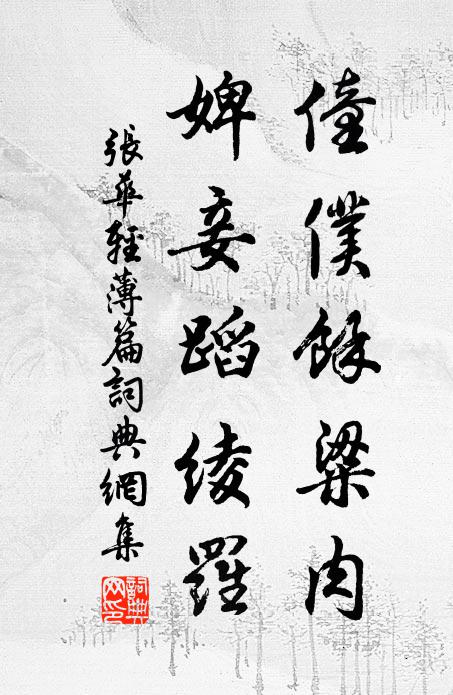 僮僕餘粱肉
婢妾蹈綾羅
張華輕薄篇詞典網集